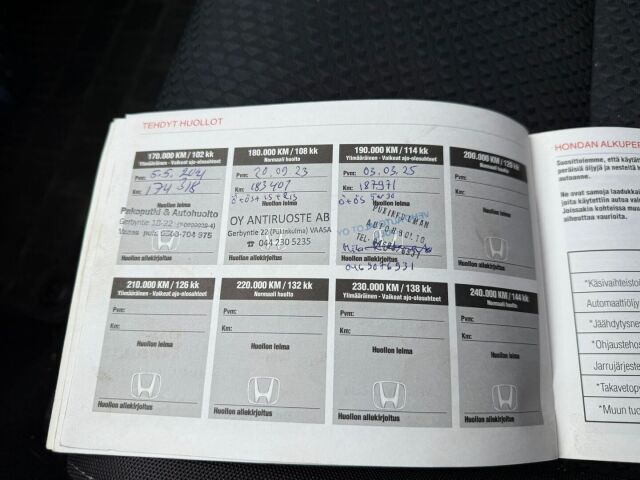 TEHDYT HUOLLOT
170.000 KM / 102 kk
Ylimääräinen - Vaikeat ajo-olosuhteet
Pvm: 5.5.2021
Km: 174 518
Huollon leima
Pakoputki & Autohuolto
Gerbyntie
Vaasa puh. 0500-704 975
180.000 KM / 108 kk
Normaali huolto
Pvm: 20.09.23
Km: 183407
Huollon leima
OY ANTIRUOSTE AB
Gerbyntie 22 (Pukinkulma) VAASA
☎ 044 230 5235
190.000 KM / 114 kk
Ylimääräinen - Vaikeat ajo-olosuhteet
Pvm: 03.03.25
Km: 187971
Huollon leima
AUTOHUOLTO
TEL.
200.000 KM / 120 kk
Normaali huolto
Pvm:
Km:
Huollon leima
210.000 KM / 126 kk
Ylimääräinen - Vaikeat ajo-olosuhteet
Pvm:
Km:
Huollon leima
Huollon allekirjoitus
220.000 KM / 132 kk
Normaali huolto
Pvm:
Km:
Huollon leima
Huollon allekirjoitus
230.000 KM / 138 kk
Ylimääräinen - Vaikeat ajo-olosuhteet
Pvm:
Km:
Huollon leima
Huollon allekirjoitus
240.000 KM / 144 kk
Normaali huolto
Pvm:
Km:
Huollon leima
Huollon allekirjoitus
HONDAN ALKUPER
Suosittelemme, että käytät
peräisiä öljyjä ja nesteitä
autoanne.
Ne ovat samoja laadukkai
joita käytettiin autoa
Joissakin kohteissa
aiheuttaa vaurioita.
*Käsivaihteisto
Automaattiöljy
*Jäähdytysnes
*Ohjaustehos
Jarrujärjeste
*Takavetop
*Muun tuo